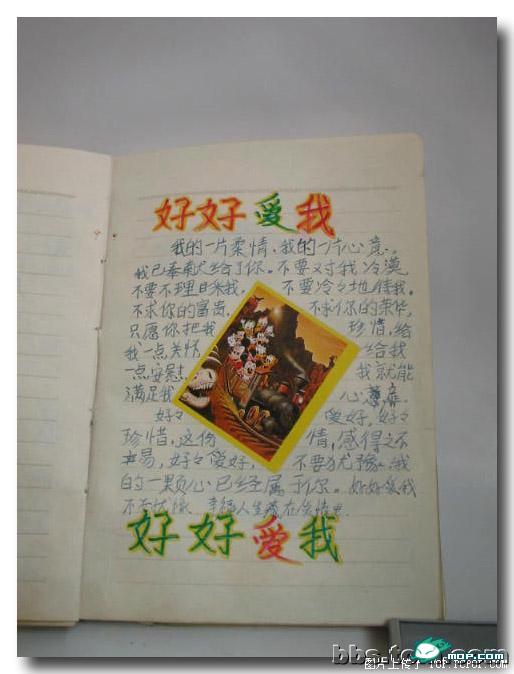 好好爱我
我的一片柔情、我的一片心意。
我已奉献给了你。不要对我冷漠
不要不理睬我。不要冷冷地待我。
不求你的富贵,不求你的荣华,
只愿你把我珍惜,给
我一点关怀,给我
一点安慰,我就能
满足我心
好々爱好,好々
珍惜,这份情,感得之不
易,好々爱好,不要犹豫,我
的一颗心已经属于你。好好爱我
不要犹豫
好好爱我
bbs.
mop.com
图片上传于